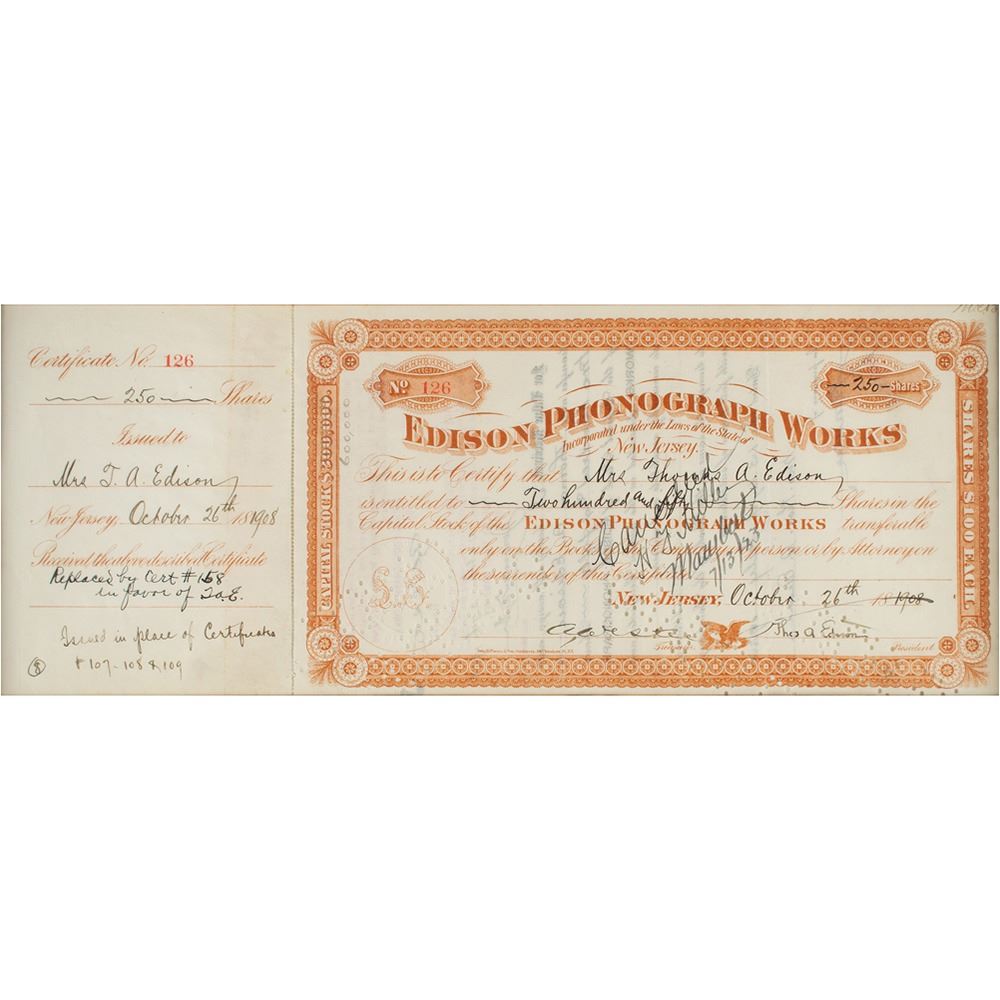 Certificate No. 126
250 Shares
Issued to
Mrs T. A. Edison
New Jersey, October 26th 181908
Received the above described Certificate
Replaced by Cert # 158
in favor of T.A.E.
Issued in place of Certificates
# 107-108 & 109
CAPITAL STOCK $
600,000
No 126
250 Shares
EDISON PHONOGRAPH WORKS
Incorporated under the Laws of the State of
New Jersey.
This is to Certify that Mrs Thomas A. Edison
is entitled to Two hundred and fifty Shares in the
Capital Stock of the EDISON PHONOGRAPH WORKS transferable
only on the Books of the Company in person or by Attorney on
the surrender of this Certificate
NEW JERSEY, October 26th 18 1908
L.S.
Thos A Edison
Treasurer President
SHARES $100 EACH
Cancelled
7/13/23